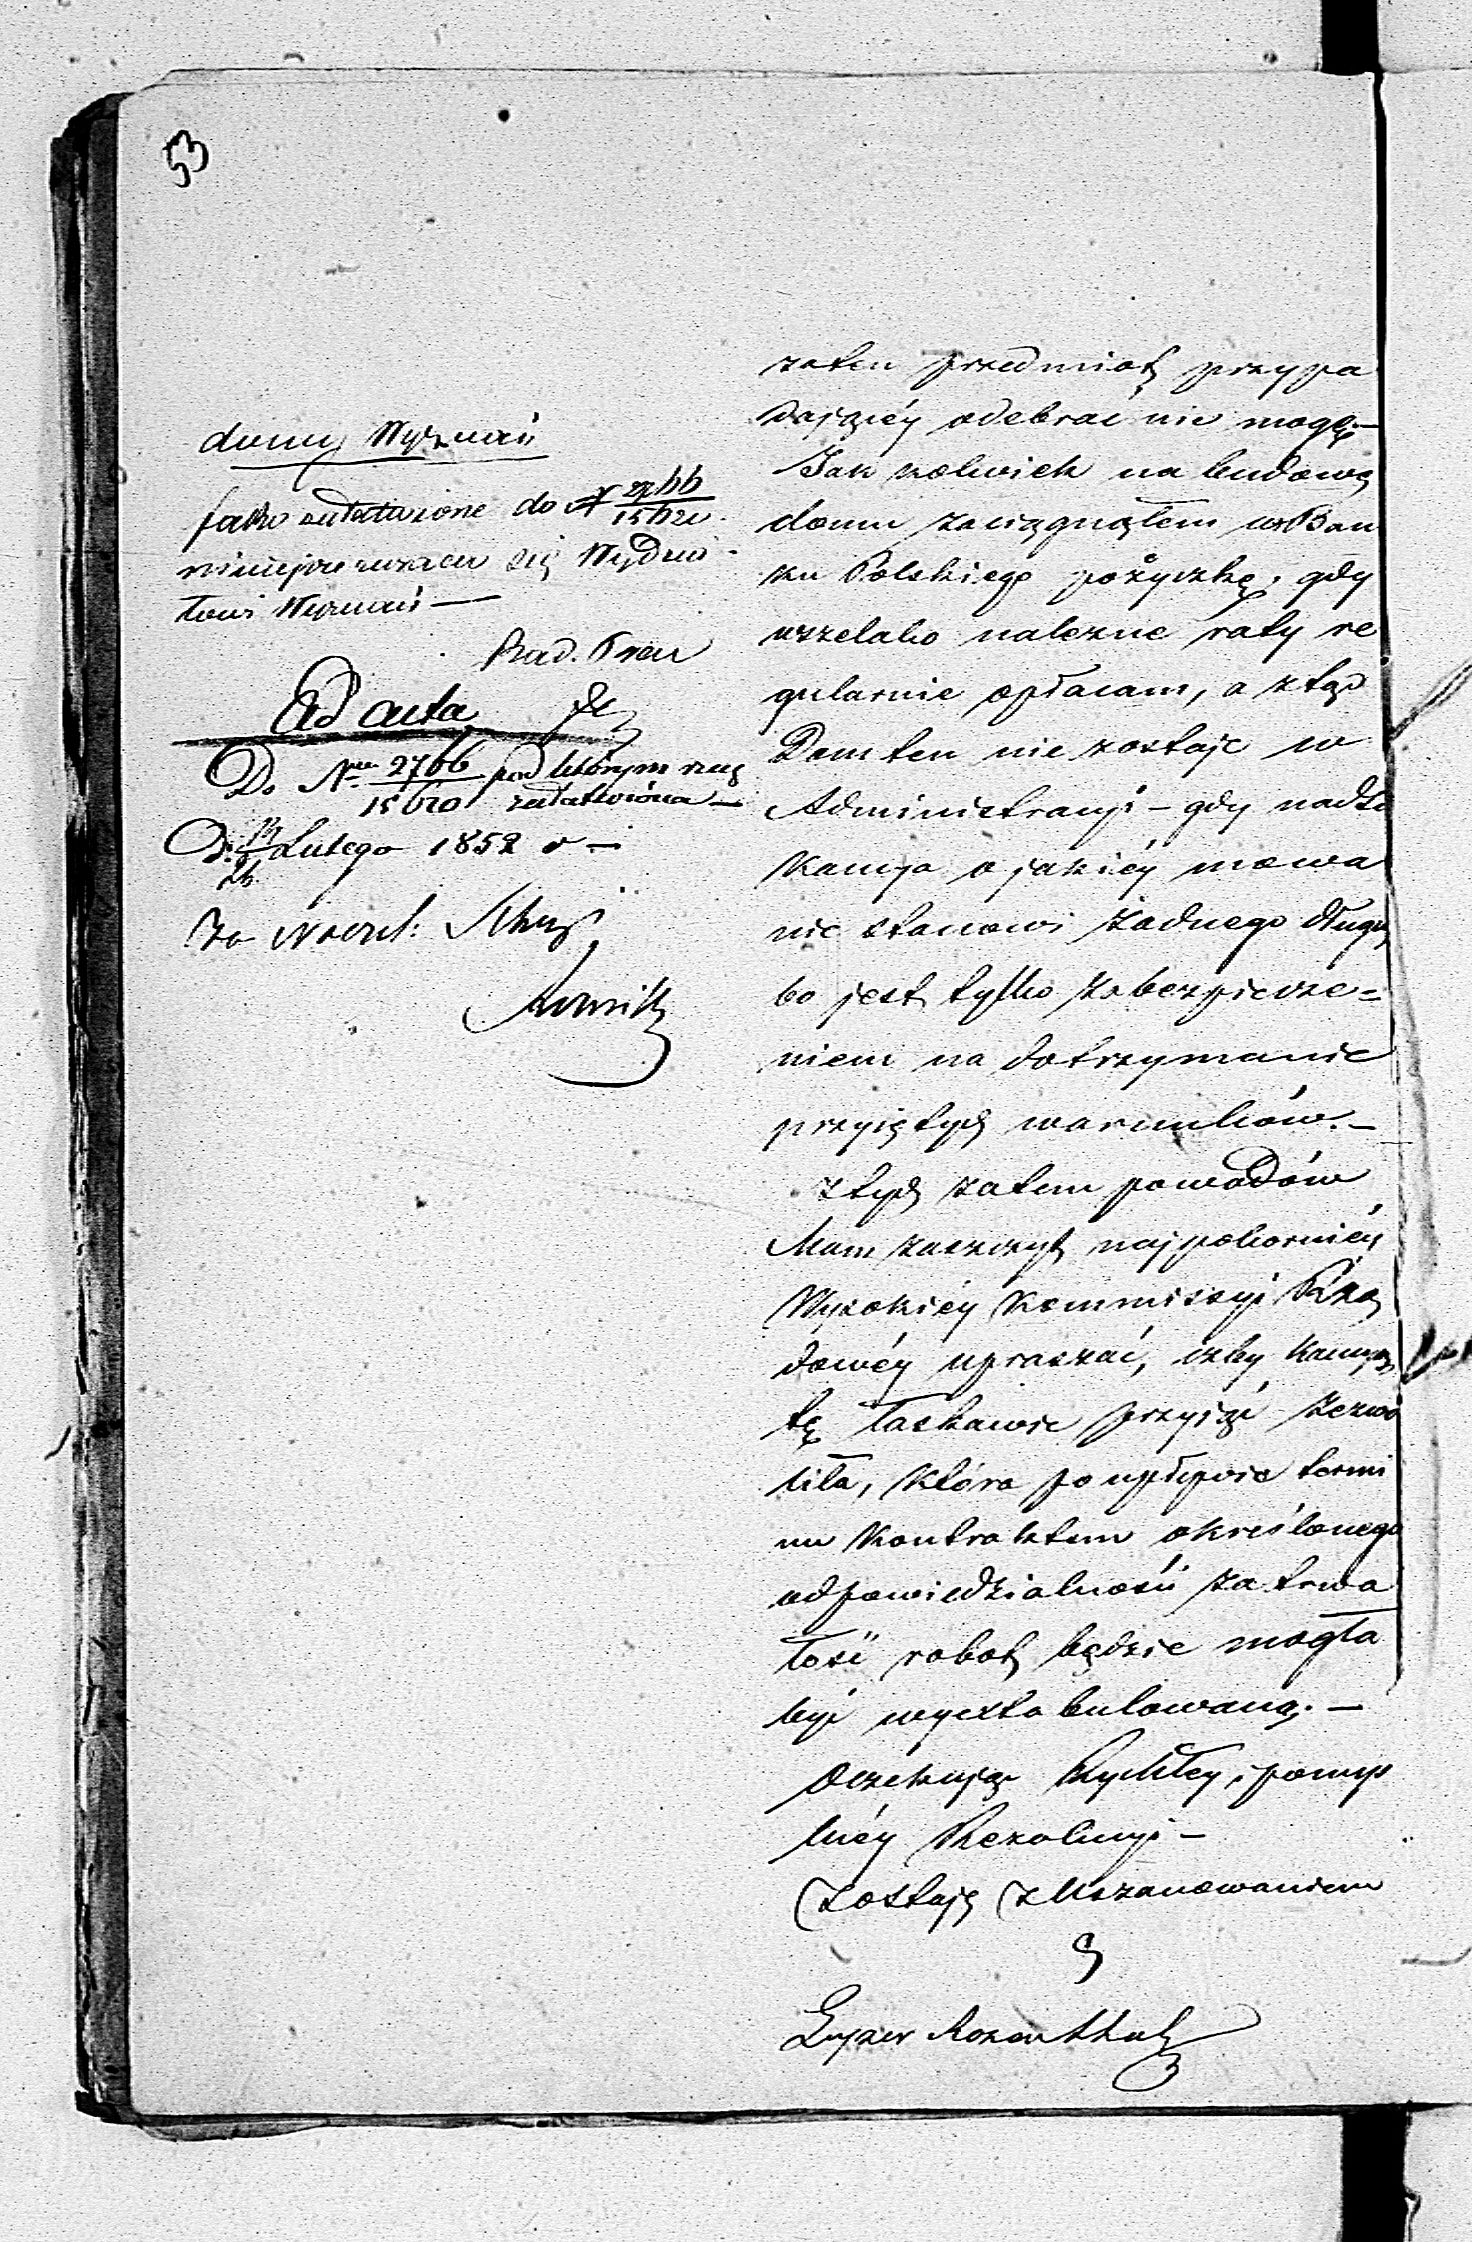 53
domy Wyznań
jako załatwione do N 2766/15620
niniejsze zwraca się Wydzia
łowi Wyznań —
Ad acta
Do Nru 2766/15620 pod którym rzecz
załatwiona —
D. 14/26 Lutego 1852 r —
Za Naczel:
zaten przedmiot przypa
dającéj odebrać nie mogę. —
Jak kolwiek na budowę
domu zaciągnąłem w Ban
ku Polskiego pożyczkę, gdy
wszelako należne raty re
gularnie opłacam, a ztąd
Dom ten nie zostaje w
Administracyi – gdy nadto
Kaucya o jakiéy mowa
nie stanowi żadnego długu,
bo jest tylko zabezpiecze=
niem na dotrzymanie
przyiętych warunków. —
z tych zatem powodów
Mam zaszczyt najpokorniéy
Wysokiéy Kommissyi Rzą
dowéy upraszać, iżby Kaucyą
tę łaskawie przyjąć zezwo
liła, która po upływie termi
nu Kontraktem określonego
odpowiedzialności za trwa
łość robot będzie mogła
być wyextabulowaną. —
Oczekując Rychłey, pomyś
lnéy Rezolucyi –
Zostaję z Uszanowaniem
Lyzer Rozenthal